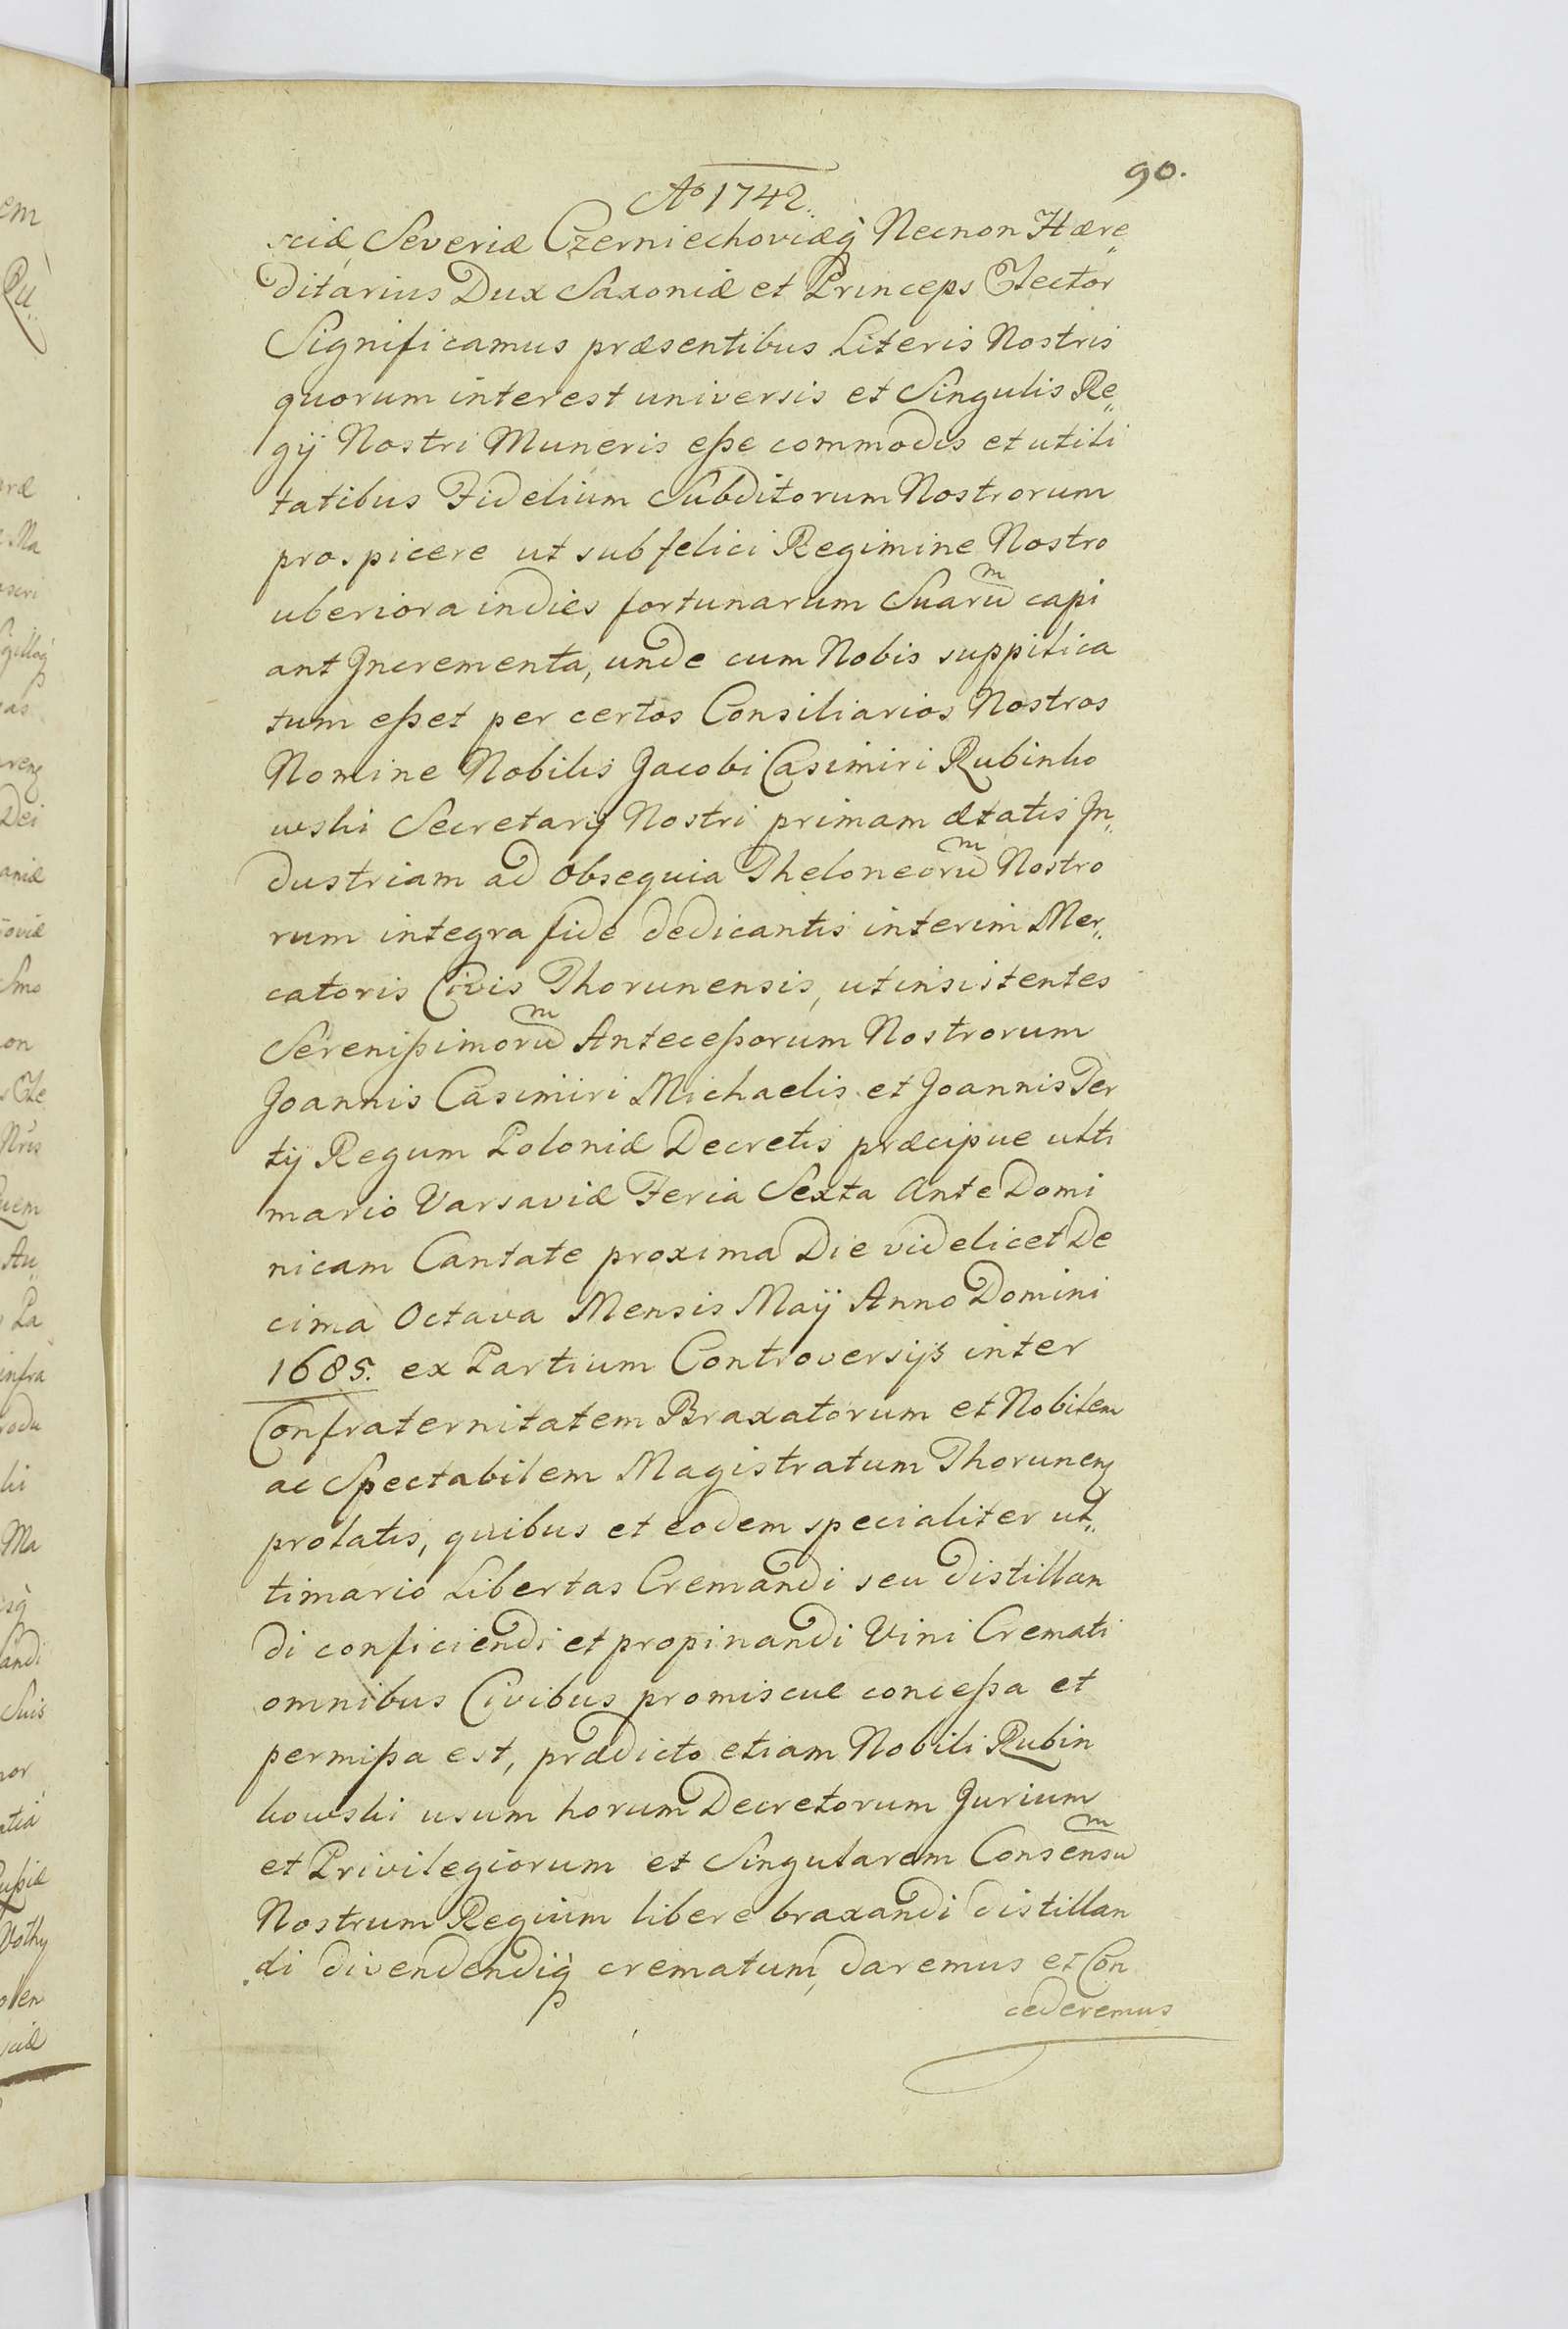 90.
Aº 1742.
sciæ, Severiæ Czerniechoviæq̀ Necnon Hære„
ditarius Dux Saxoniæ et Princeps Elector
Significamus præsentibus Literis Nostris
quorum interest universis et Singulis Re„
gij Nostri Muneris eße commodis et utili
tatibus Fidelium Subditorum Nostrorum
prospicere ut sub felici Regimine Nostro
uberiora indies fortunarum Suarum capi
ant Jncrementa, unde cum Nobis supplica
tum eßet per certos Consiliarios Nostros
Nomine Nobilis Jacobi Casimiri Rubinko
wski Secretarij Nostri primam ætatis Jn„
dustriam ad obsequia Theloneorum Nostro
rum integra fide dedicantis interim Mer„
catoris Civis Thorunensis, ut insistentes
Sereni​ßimorum Anteceßorum Nostrorum
Joannis Casimiri Michaelis et Joannis Ter
tij Regum Poloniæ Decretis præcipue ulti
mario Varsaviæ Feria Sexta Ante Domi
nicam Cantate proxima Die videlicet De
cima Octava Mensis Maij Anno Domini
1685. ex Partium Controversijs inter
Confraternitatem Braxatorum et Nobilem
ac Spectabilem Magistratum Thorunens
prolatis, quibus et eodem specialiter ul„
timario Libertas Cremandi seu distillan
di conficiendi et propinandi Vini Cremati
omnibus Civibus promiscue conceßa et
permißa est, prædicto etiam Nobili Rubin
kowski usum horum Decretorum Jurium
et Privilegiorum et Singularem Consensum
Nostrum Regium libere braxandi distillan
di divendendiq̀ crematum, daremus et Con
cederemus